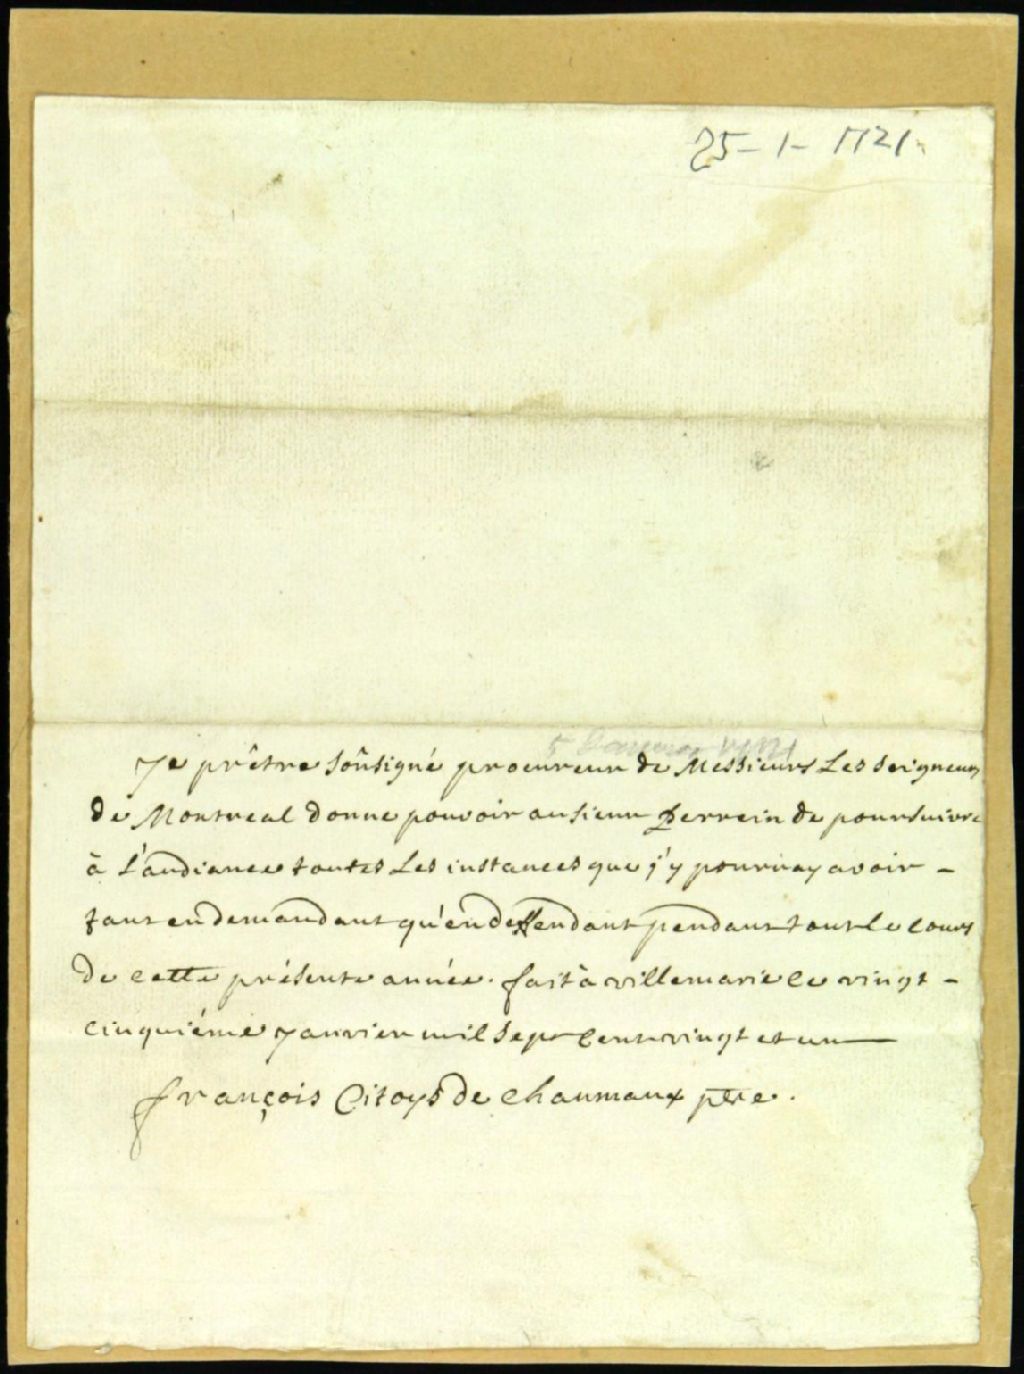 25-1-1721
Je prêtre soûsigné procureur de Messieurs Les seigneurs
de Montreal donne pouvoir au sieur perrein de poursuivre
à L'audiance toutes Les instances que j'y pourray avoir -
tant en demandant qu'en deffendant pendant tout le cours
de cette présente année. fait à villemarie le vingt-
cinquiéme Janvier mil sept cent vingt et un
françois Citoys de Chaumaux ptre.